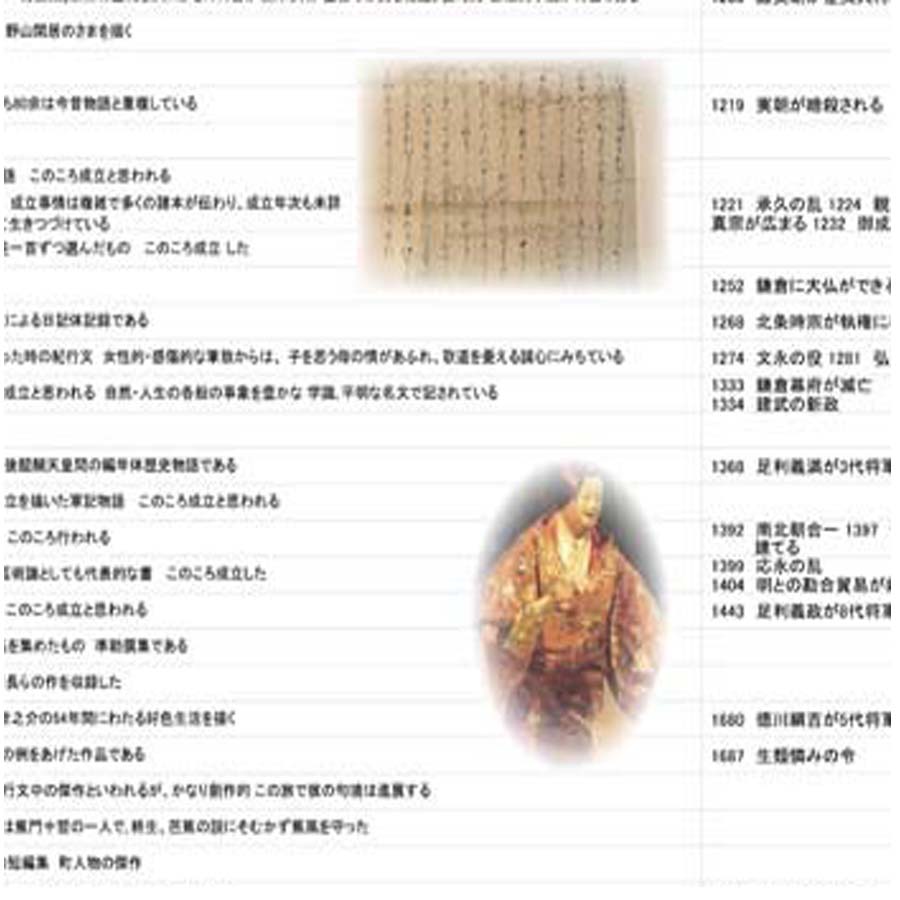 野山閑居のさまを描く
も80余は今昔物語と重複している
1219 実朝が暗殺される
語 このころ成立と思われる
成立事情は複雑で多くの諸本が伝わり、成立年次も未詳
1221 承久の乱 1224 親
生きつづけている
真宗が広まる 1232 御成
一首ずつ選んだもの このころ成立した
1252 鎌倉に大仏ができる
による日記体記録である
1268 北条時宗が執権に
った時の紀行文 女性的・感傷的な筆致からは、子を思う母の情があふれ、歌道を憂える誠心にみちている
1274 文永の役 1281 弘
成立と思われる 自然・人生の各般の事象を豊かな 学識、平明な名文で記されている
1333 鎌倉幕府が滅亡
1334 建武の新政
後醍醐天皇間の編年体歴史物語である
1368 足利義満が3代将軍
立を描いた軍記物語 このころ成立と思われる
このころ行われる
1392 南北朝合一 1397
建てる
芸術論としても代表的な書 このころ成立した
1399 応永の乱
1404 明との勘合貿易が
このころ成立と思われる
1443 足利義政が8代将軍
を集めたもの 準勅撰集である
長らの作を収録した
世之介の54年間にわたる好色生活を描く
1680 徳川綱吉が5代将軍
の例をあげた作品である
1687 生類憐みの令
行文中の傑作といわれるが、かなり創作的 この旅で彼の句境は進展する
は蕉門十哲の一人で、終生、芭蕉の説にそむかず蕉風を守った
短編集 町人物の傑作